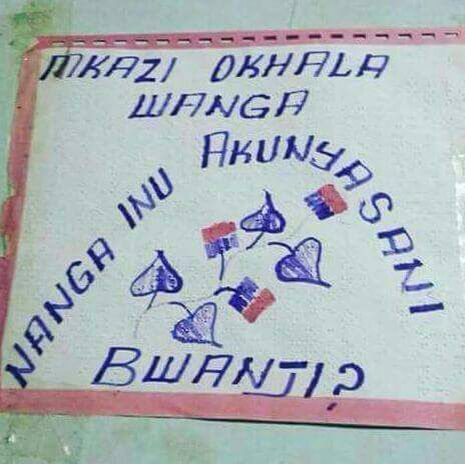 MKAZI OKHALA
WANGA
NANGA INU AKUNYASANI
BWANJI?